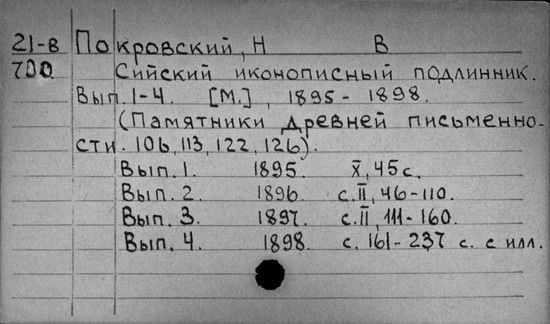 21-в Покровский, Н В
700 Сийский иконописный подлинник.
Вып. 1-4. [М.], 1895- 1898.
(Памятники древней письменно-
сти. 106, 113, 122, 126).
Вып. 1. 1895. X, 45 с.
Вып. 2. 1896. с. II, 46-110.
Вып. 3. 1897. с. II, 111-160.
Вып. 4. 1898. с. 161-237 с. с илл.